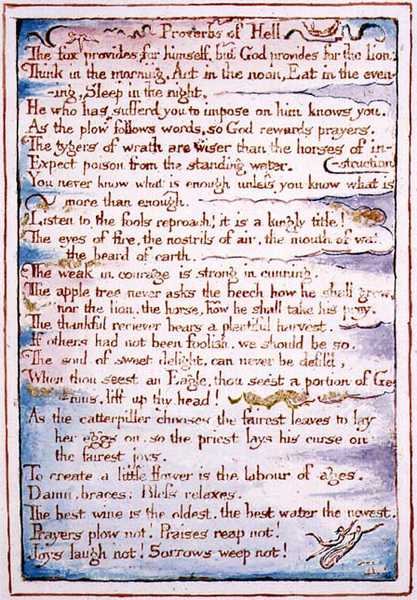 Proverbs of Hell
The fox provides for himself, but God provides for the lion.
Think in the morning, Act in the noon, Eat in the even-
-ing, Sleep in the night.
He who has sufferd you to impose on him knows you.
As the plow follows words, so God rewards prayers.
The tygers of wrath are wiser than the horses of in-
Expect poison from the standing water. (-struction
You never know what is enough unless you know what is
more than enough.
Listen to the fools reproach! it is a kingly title!
The eyes of fire, the nostrils of air, the mouth of water,
the beard of earth.
The weak in courage is strong in cunning.
The apple tree never asks the beech how he shall grow,
nor the lion, the horse, how he shall take his prey.
The thankful reciever bears a plentiful harvest.
If others had not been foolish, we should be so.
The soul of sweet delight, can never be defild,
When thou seest an Eagle, thou seest a portion of Ge-
-nius, lift up thy head!
As the catterpiller chooses the fairest leaves to lay
her eggs on, so the priest lays his curse on
the fairest joys.
To create a little flower is the labour of ages.
Damn, braces: Bless relaxes.
The best wine is the oldest, the best water the newest.
Prayers plow not! Praises reap not!
Joys laugh not! Sorrows weep not!